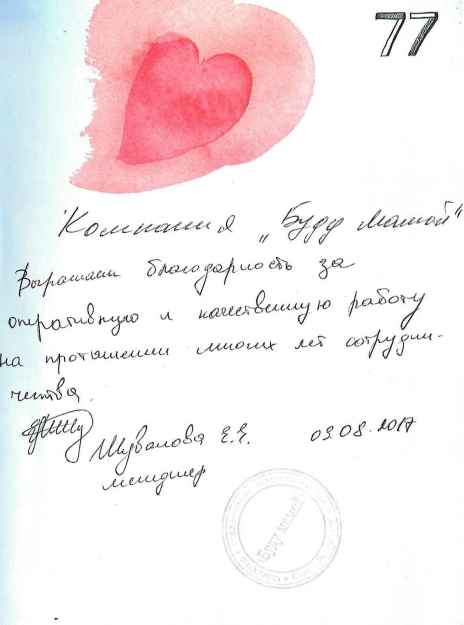 77
Компания „Буду Мамой"
Выражаем благодарность за
оперативную и качественную работу
на протяжении многих лет сотрудни-
чества.
Шувалова Е.Я.
09.08.2017
менеджер
Буду мамой